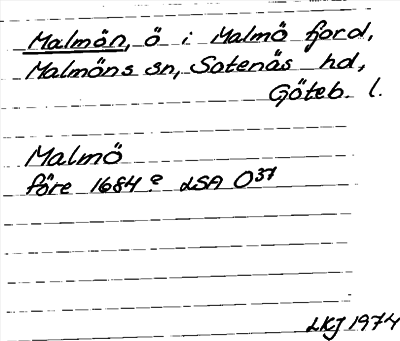 Malmön, ö i Malmö fjord,
Malmöns sn, Sotenäs hd,
Göteb. l.
Malmö
före 1684? LSA O37
LKJ 1974